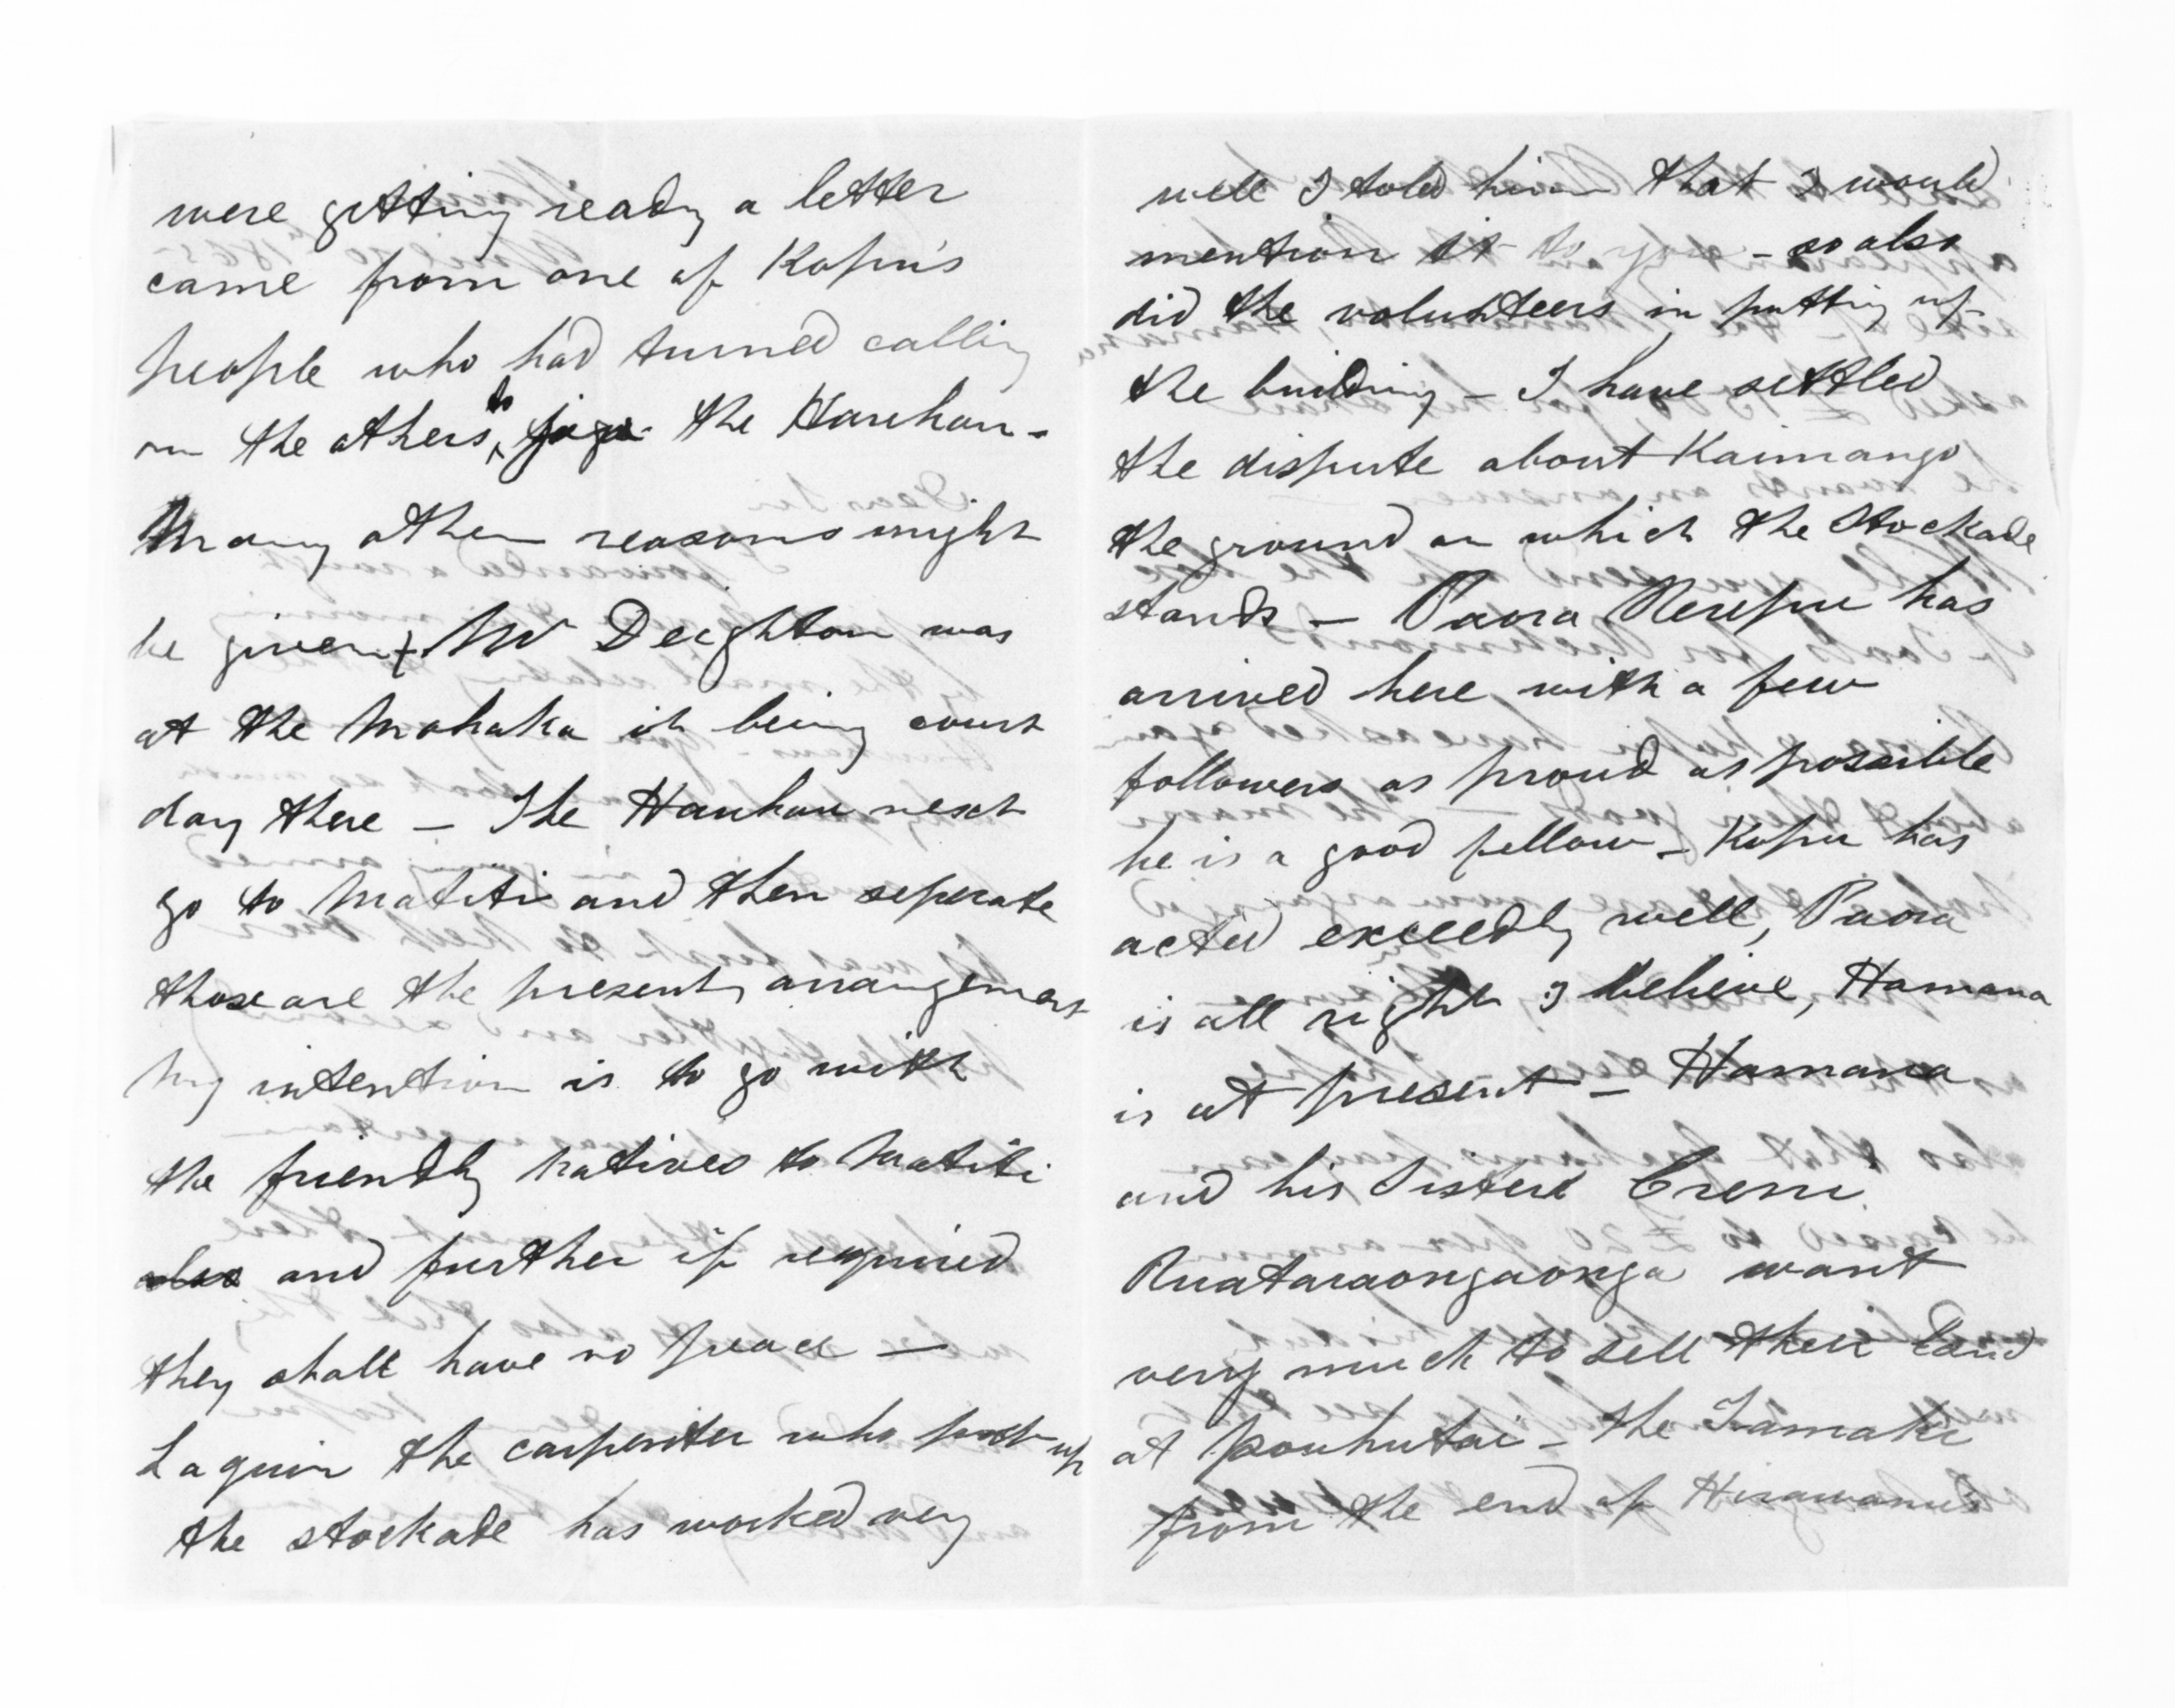 were getting ready a letter
came from one of Kopu's
people who had turned calling
on the others to join the Hauhau -
Many other reasons might
be given. Mr Deighton was
at the Mohaka it being court
day there – The Hauhau next
go to Matiti and then seperate
those are the present arrangement
My intention is to go with
the friendly natives to Matiti
also and further if required
they shall have no peace –
Laquin the carpenter who put up
the stockade has worked very
well I told him that I would
mention it to you – so also
did the volunteers in putting up
the building – I have settled
the dispute about Kaimango
the ground on which the Stockade
stands – Paora Rerepu has
arrived here with a few
followers as proud as possible
he is a good fellow – Kopu has
acted exceedly well, Paora
is all right I believe, Hamana
is at present – Hamana
and his Sister
Ruataraongaonga want
very much to sell their land
at Pouhutai – the Tamaki
from the end of